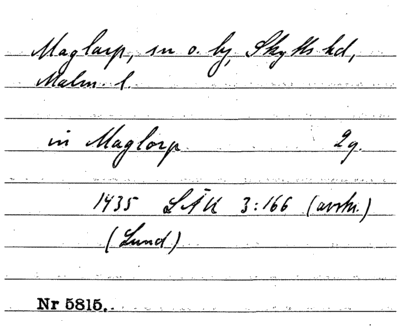 Maglarp, sn o. by, Skytts hd,
Malm. l.
in Maglorp 2g.
1435 LÄU 3:166 (avskr.)
(Lund)
Nr 5815.